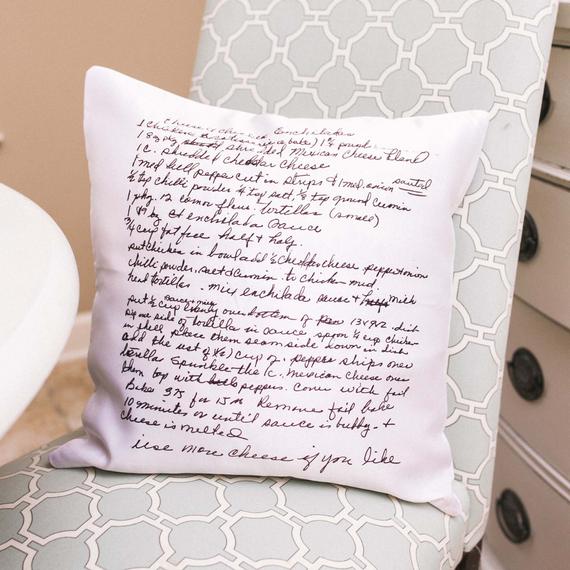 Cheese chicken Enchiladas
1 chicken (bake) 1½ pound
1 8 oz pkg shredded Mexican cheese blend
1 c. shredded cheddar cheese
1 med bell pepper cut in strips & 1 med. onion sauted
½ tsp chilli powder ¼ tsp salt, 8 tsp ground cumin
1 pkg. 12 corn flour tortillas (small)
1 ct enchilada sauce
¾ cup fat free half & half.
put chicken in bowl add ½ cheddar cheese, pepper onion
chilli powder, salt & cumin to chicken mid
heat tortillas. mix enchilada sauce & milk
put ½ cup sauce mix evenly over bottom of 13x9x2. dish
Dip one side of tortilla in sauce spoon ⅓ cup chicken
in shell place them seam side down in dish
add the rest of cup of. pepper strips over
tortilla Sprinkle the 1 c. Mexican cheese over
them top with peppers. Cover with foil
Bake 375 for 15 m Remove foil bake
10 minutes or until sauce is bubbly. +
cheese is melted
use more cheese if you like